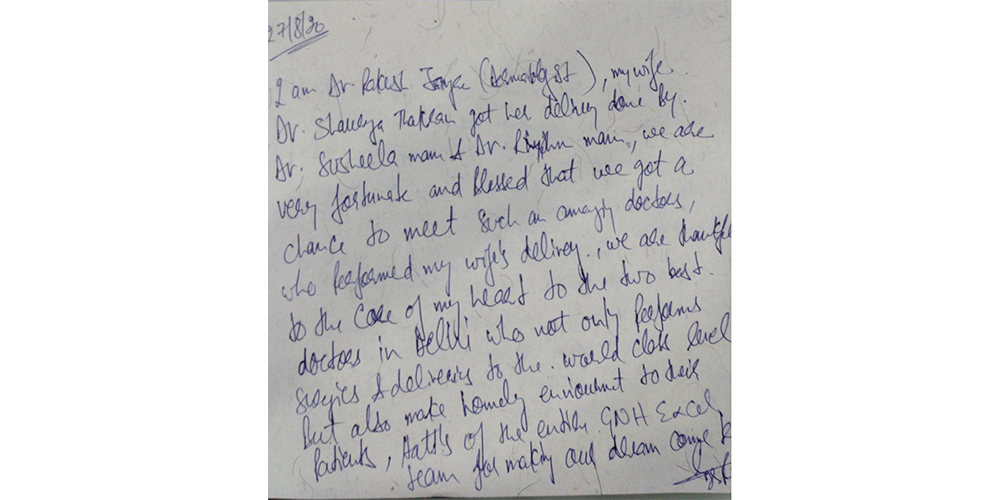 27/8/20
I am Dr Rakesh (Dermatologist), my wife
Dr. Shaurya Thakran got her delivery done by.
Dr. Susheela mam & Dr. Rhythm mam, we are
very fortunate and blessed that we got a
chance to meet such an amazing doctors,
who performed my wife's delivery., we are thankful
to the core of my heart to the two best.
doctors in Delhi who not only performs
surgies & deliveries to the. world class level
but also make homely enviourment to their
Patients, of the entire GNH Excel
team for making our dream come